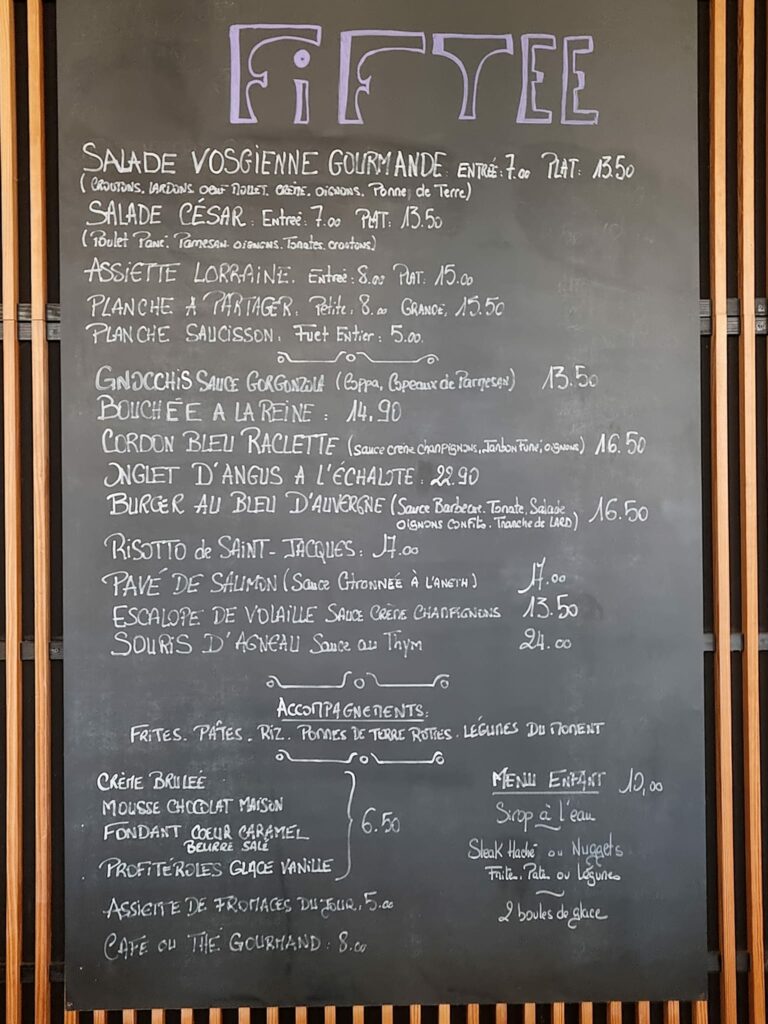 FiFTEE
SALADE VOSGIENNE GOURMANDE ENTRÉE: 7.00 PLAT: 13.50
(CROUTONS, LARDONS, OEUF MOLLET, CRÈME, OIGNONS, Pomme de Terre)
SALADE CÉSAR: Entreé: 7.00 PLAT: 13.50
(Poulet Pané, Parmesan, oignons, Tomates, croutons)
ASSIETTE LORRAINE. Entreé: 8.00 PLAT: 15.00
PLANCHE A PARTAGER. Petite: 8.00 GRANDE, 15.50
PLANCHE SAUCISSON: Fuet Entier: 5.00.
GNOCCHIS SAUCE GORGONZOLA (Coppa, Copeaux de Parmesan) 13.50
BOUCHÉE A LA REINE: 14.90
CORDON BLEU RACLETTE (sauce crème champignons, Jambon Fumé, oignons) 16.50
ONGLET D'ANGUS A L'ÉCHALOTE: 22.90
BURGER AU BLEU D'AUVERGNE (Sauce Barbecue, Tomate, Salade
OIGNONS CONFITS, Tranche de LARD) 16.50
RISOTTO de SAINT-JACQUES: 17.00
PAVÉ DE SAUMON (Sauce Citronneé À L'ANETH) 17.00
ESCALOPE DE VOLAILLE SAUCE CRÈME CHAMPIGNONS 13.50
SOURIS D'AGNEAU Sauce au Thym 24.00
ACCOMPAGNEMENTS:
FRITES. PÂTES. RIZ. POMMES DE TERRE ROTIES. LÉGUMES DU MOMENT
CRÈME BRULEÉ
MOUSSE CHOCOLAT MAISON
FONDANT COEUR CARAMEL
BEURRE SALÉ
PROFITÉROLES GLACE VANILLE
6.50
ASSIETTE DE FROMAGES DU JOUR, 5.00
CAFÉ OU THÉ GOURMAND: 8.00
MENU ENFANT 10,00
Sirop à l'eau
Steak Haché ou Nuggets
Frite, Pate ou Légumes
2 boules de glace